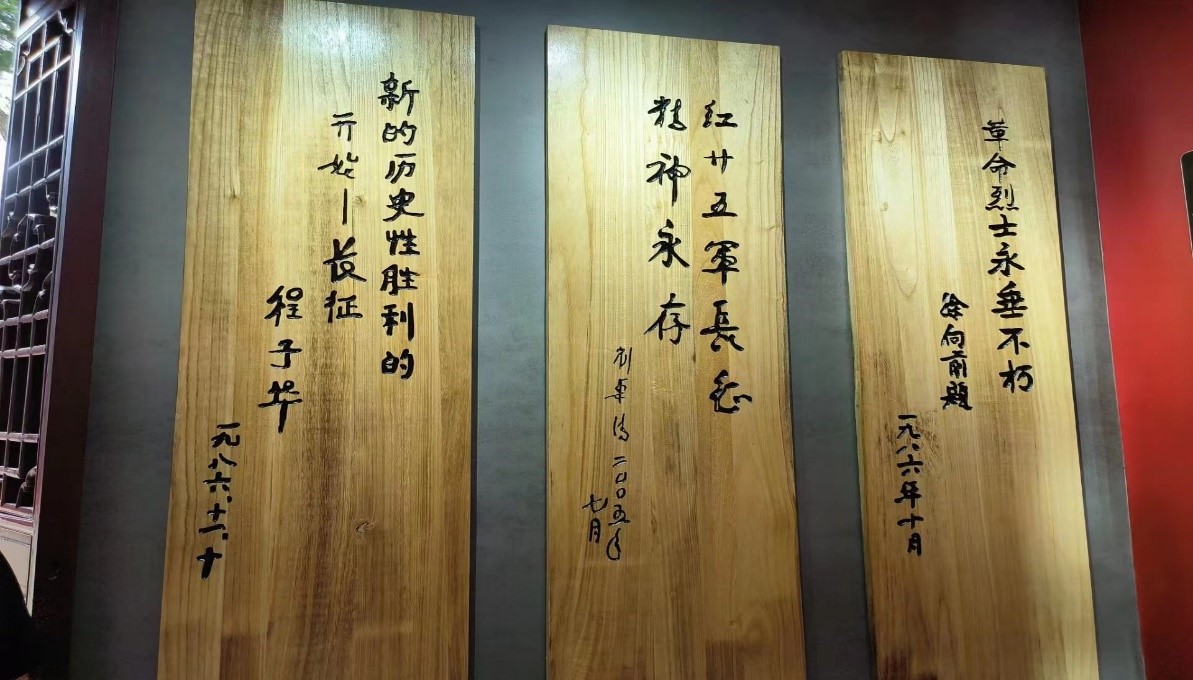 革命烈士永垂不朽
徐向前题
一九八六年十月
红廿五軍長征
精神永存
刘華清 二〇〇五年
七月
新的历史性胜利的
开始—長征
程子华
一九八六.十一.十